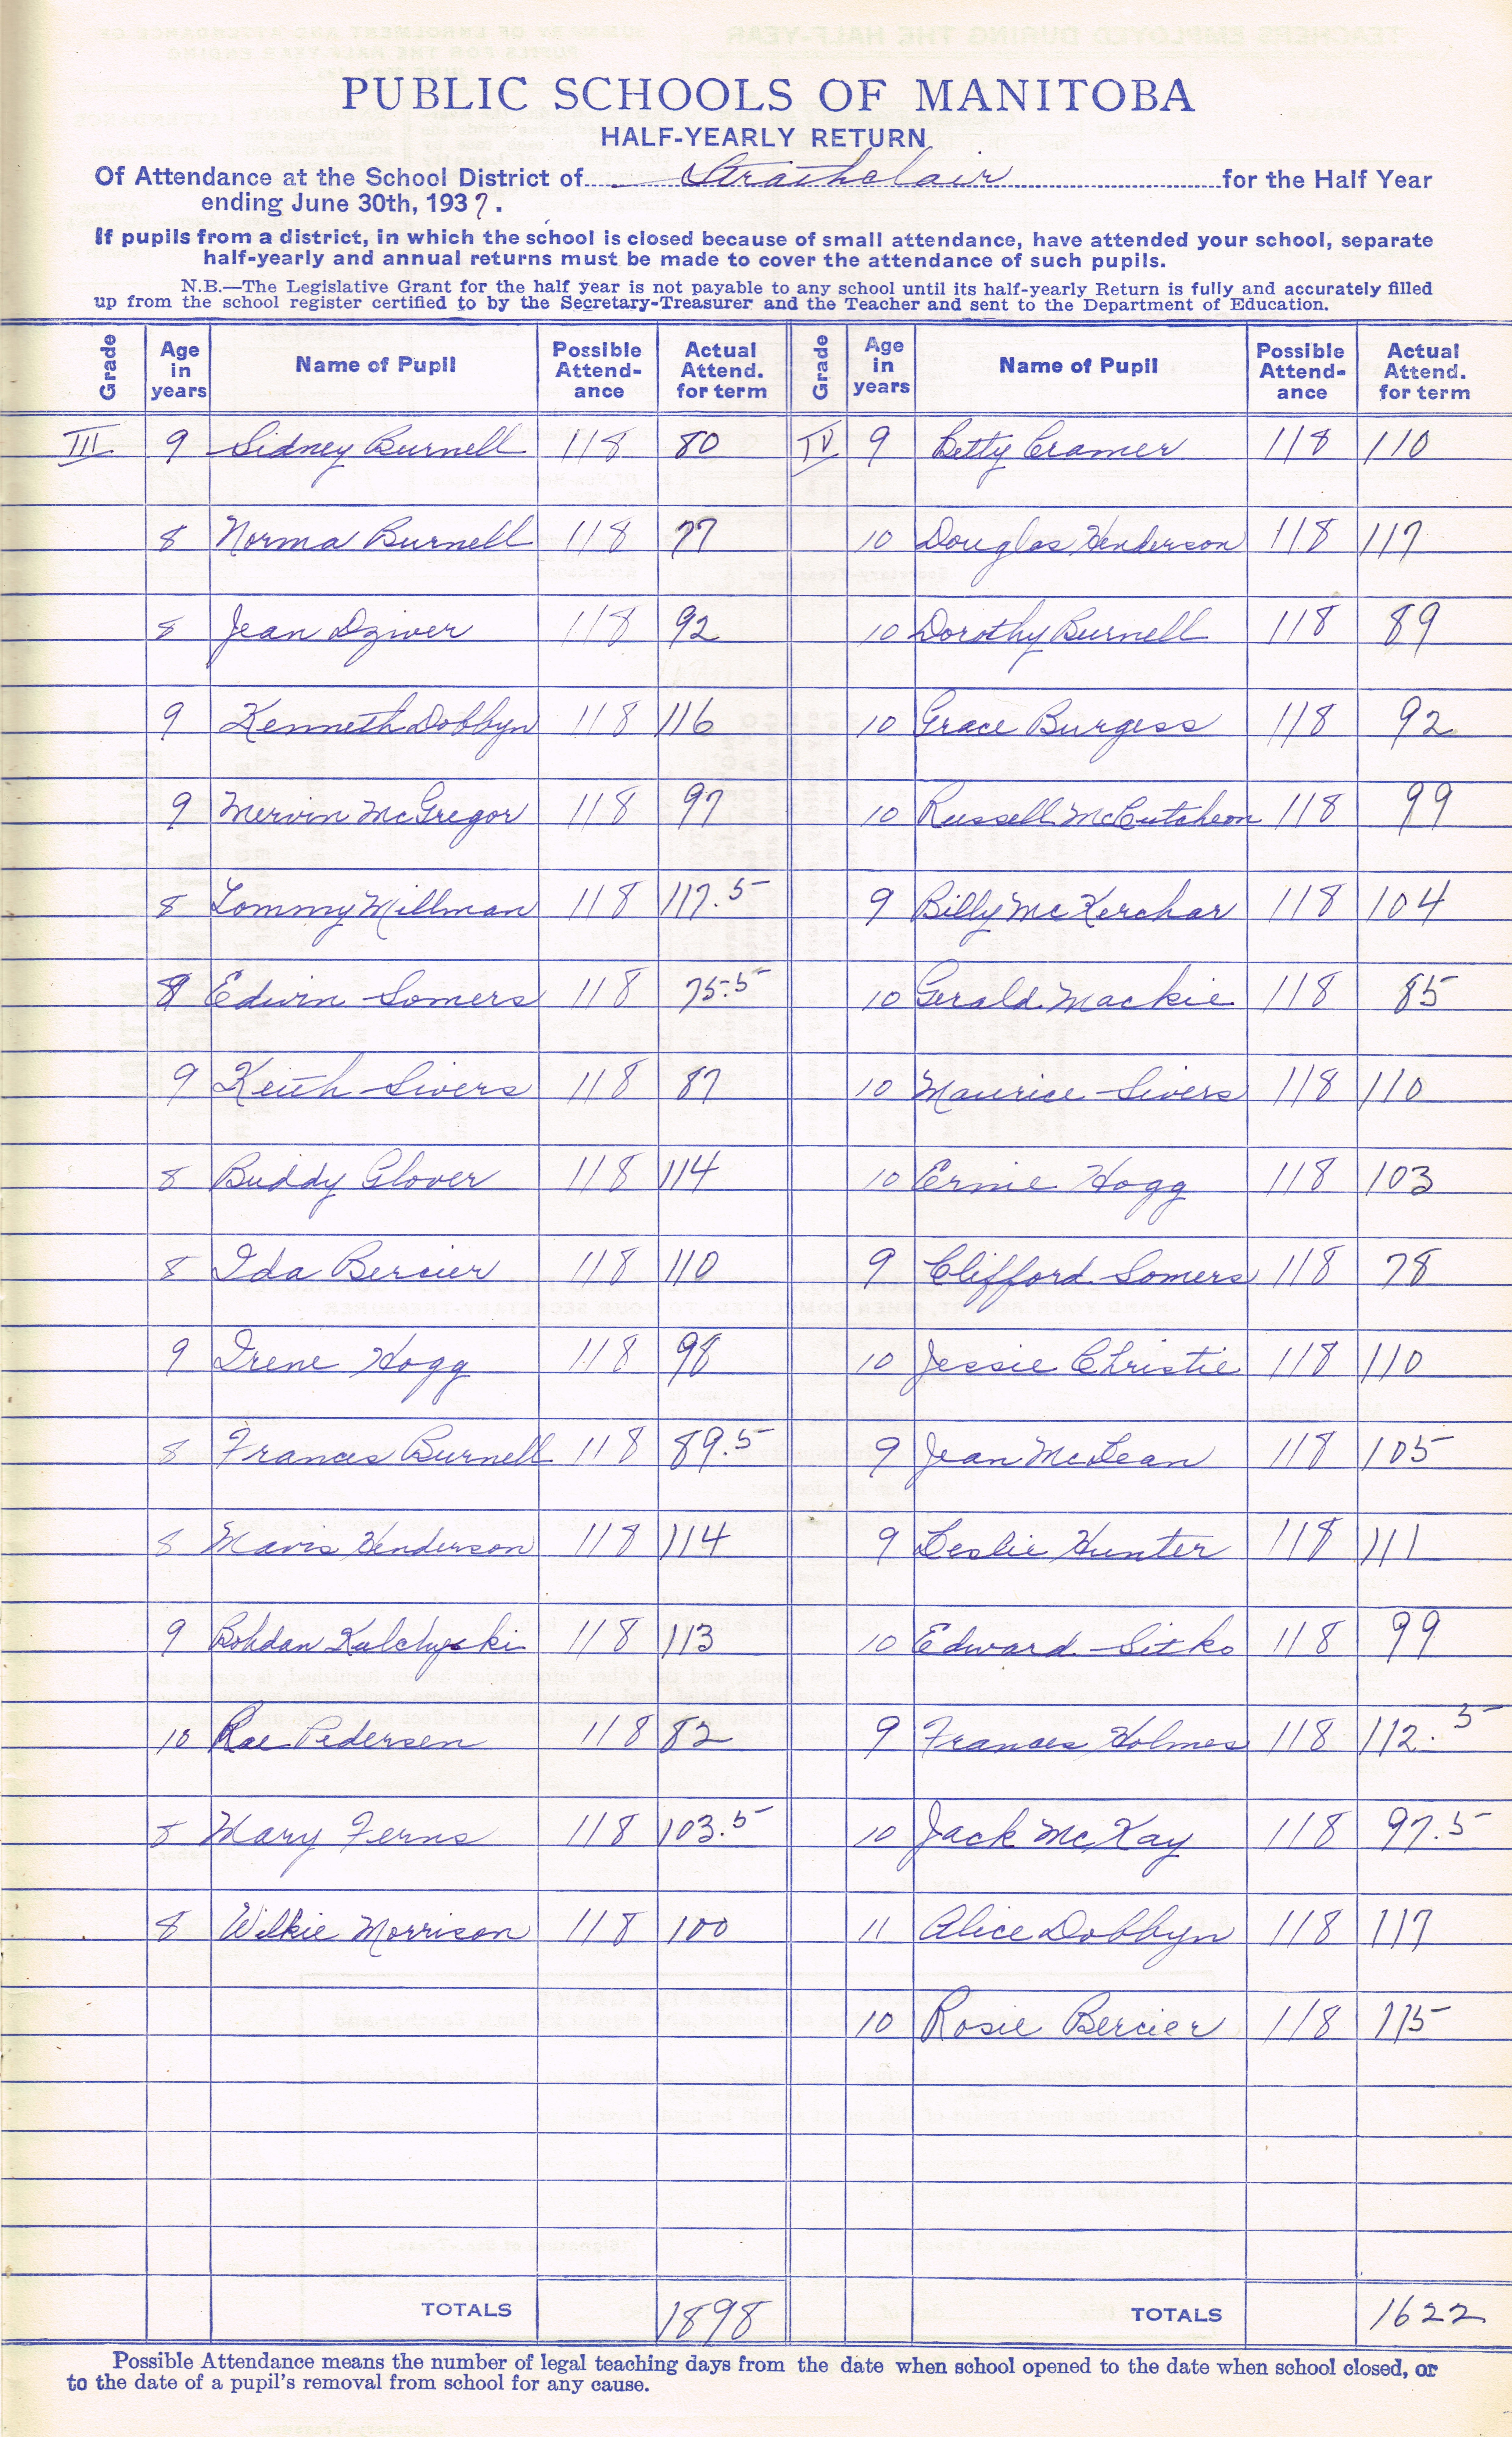 PUBLIC SCHOOLS OF MANITOBA
HALF-YEARLY RETURN
Of Attendance at the School District of Strathclair for the Half Year
ending June 30th, 1937.
If pupils from a district, in which the school is closed because of small attendance, have attended your school, separate
half-yearly and annual returns must be made to cover the attendance of such pupils.
N.B.—The Legislative Grant for the half year is not payable to any school until its half-yearly Return is fully and accurately filled
up from the school register certified to by the Secretary-Treasurer and the Teacher and sent to the Department of Education.
Grade Age in years Name of Pupil Possible Attend-ance Actual Attend. for term Grade Age in years Name of Pupil Possible Attend-ance Actual Attend. for term
III 9 Sidney Burnell 118 80 IV 9 Betty Cramer 118 110
8 Norma Burnell 118 77 10 Douglas Henderson 118 117
8 Jean Dziver 118 92 10 Dorothy Burnell 118 89
9 Kenneth Dobbyn 118 116 10 Grace Burgess 118 92
9 Mervin McGregor 118 97 10 Russell McCutcheon 118 99
8 Tommy Millman 118 117.5 9 Billy McKerchar 118 104
8 Edwin Somers 118 75.5 10 Gerald Mackie 118 85
9 Keith Sivers 118 87 10 Maurice Sivers 118 110
8 Buddy Glover 118 114 10 Ernie Hogg 118 103
8 Ida Bercier 118 110 9 Clifford Somers 118 78
9 Irene Hogg 118 98 10 Jessie Christie 118 110
8 Frances Burnell 118 89.5 9 Jean McLean 118 105
8 Mavis Henderson 118 114 9 Leslie Hunter 118 111
9 Bohdan Kulchyski 118 113 10 Edward Sitko 118 99
10 Rae Pedersen 118 82 9 Frances Holmes 118 112.5
8 Mary Ferns 118 103.5 10 Jack McKay 118 97.5
8 Wilkie Morrison 118 100 11 Alice Dobbyn 118 117
10 Rosie Bercier 118 115
TOTALS 1898 TOTALS 1622
Possible Attendance means the number of legal teaching days from the date when school opened to the date when school closed, or
to the date of a pupil's removal from school for any cause.